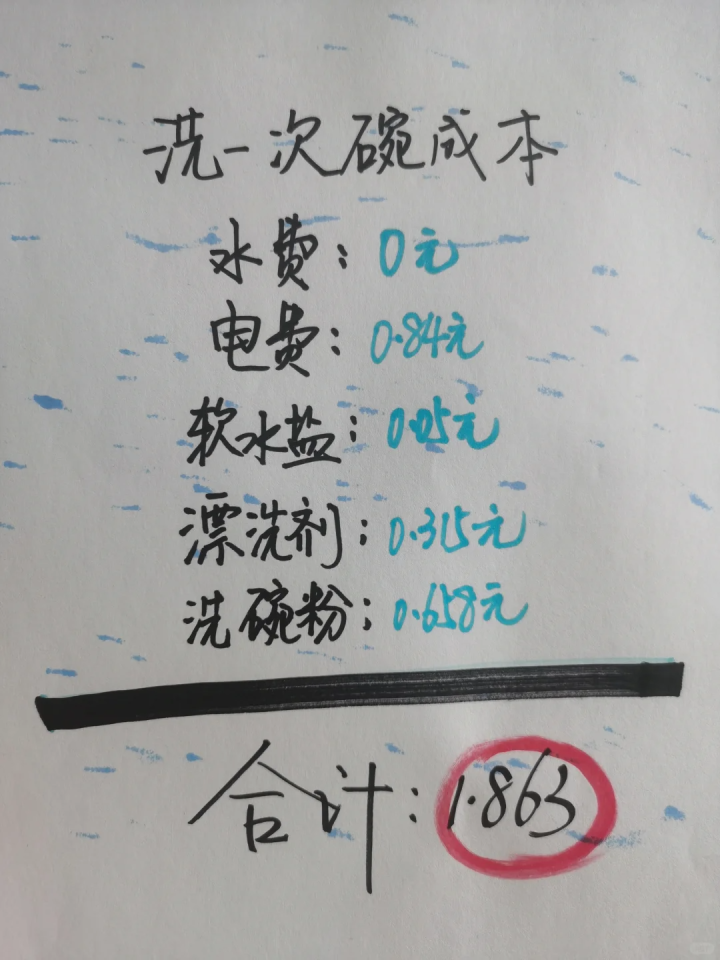 洗一次碗成本
水费：0元
电费：0.84元
软水盐：0.05元
漂洗剂：0.315元
洗碗粉：0.658元
合计：1.863